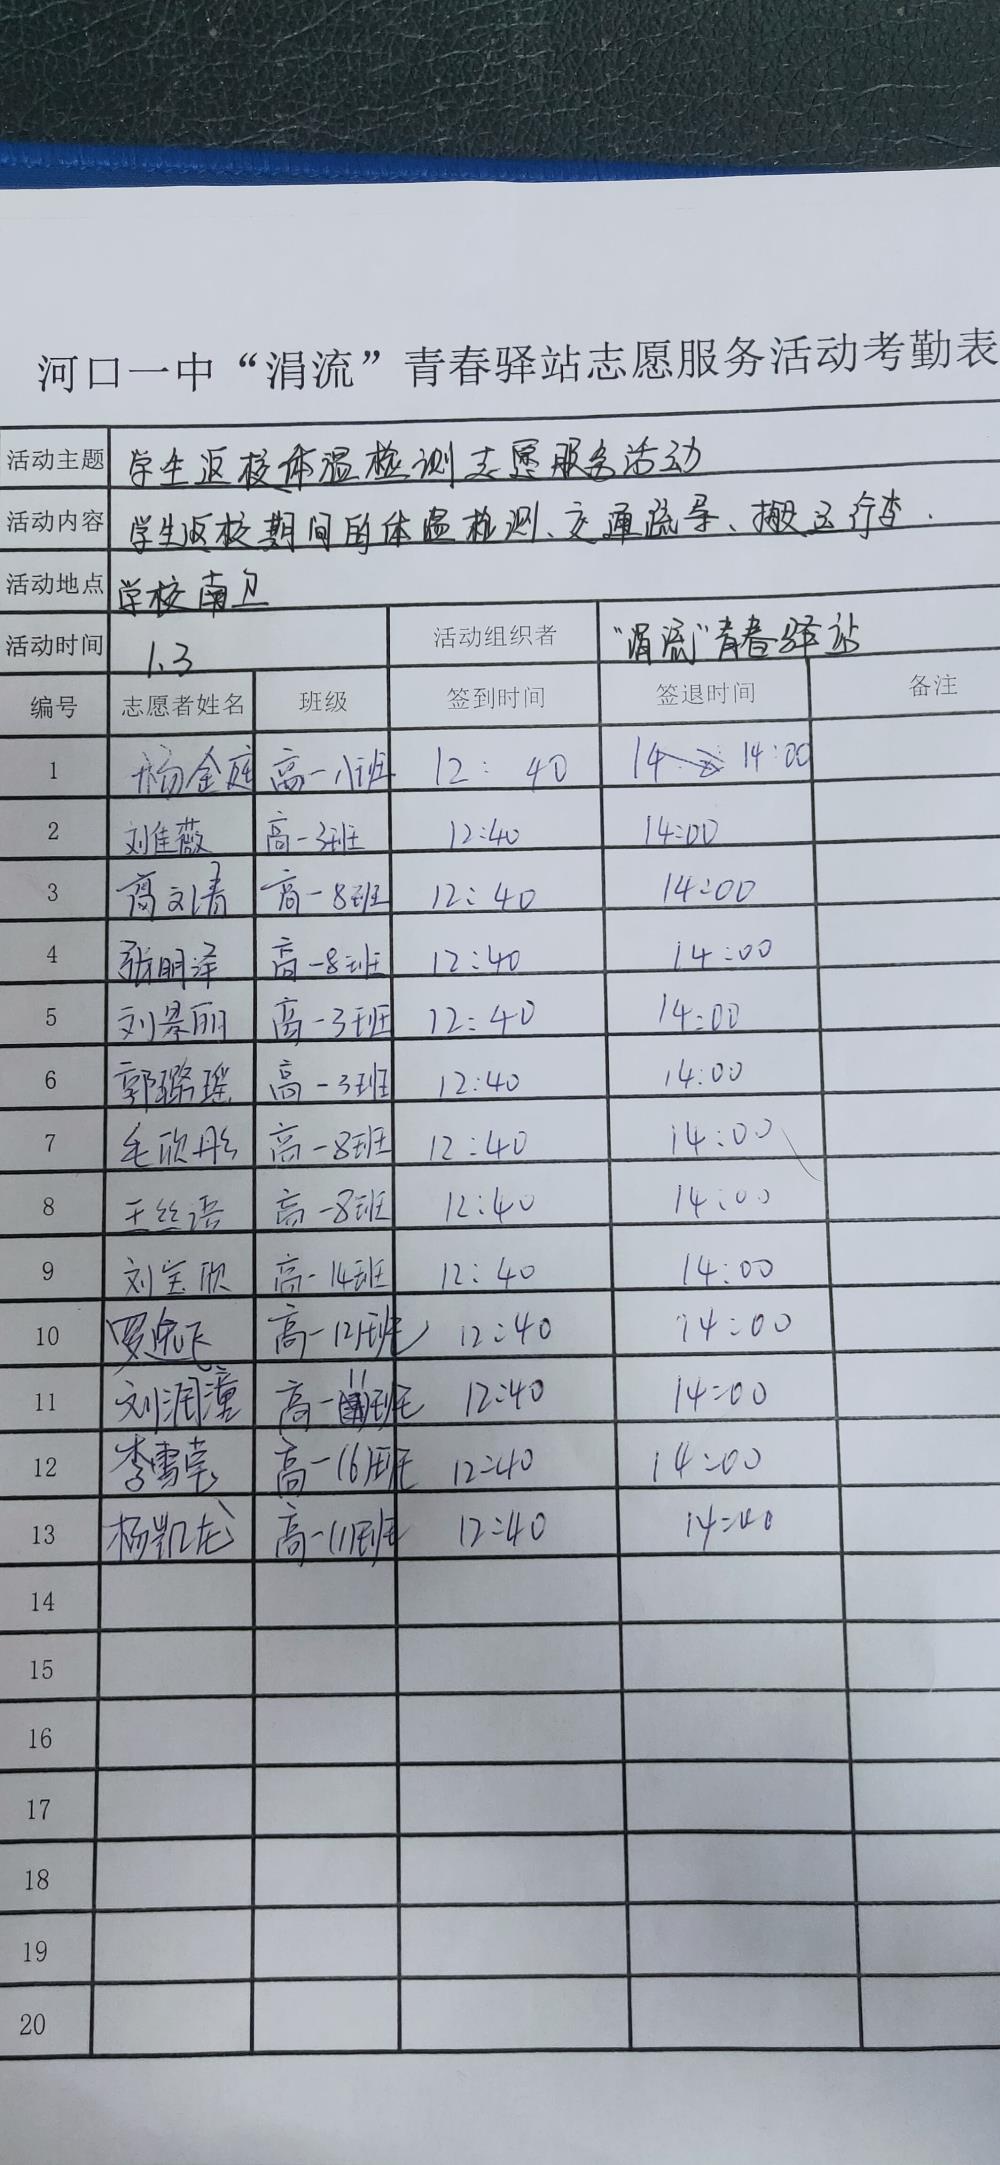 河口一中“涓流”青春驿站志愿服务活动考勤表
活动主题 学生返校体温检测志愿服务活动
活动内容 学生返校期间的体温检测、交通疏导、搬运行李.
活动地点 学校南卫
活动时间 1.3 活动组织者 “涓流”青春驿站
编号 志愿者姓名 班级 签到时间 签退时间 备注
1 杨金庭 高一 班 12:40 14:00
2 刘佳薇 高一3班 12:40 14:00
3 高文清 高一8班 12:40 14:00
4 张明泽 高一8班 12:40 14:00
5 刘景丽 高一3班 12:40 14:00
6 郭璐瑶 高一3班 12:40 14:00
7 毛欣彤 高一8班 12:40 14:00
8 王丝语 高一8班 12:40 14:00
9 刘宝欣 高一14班 12:40 14:00
10 罗逸飞 高一12班 12:40 14:00
11 刘润潼 高一11班 12:40 14:00
12 李雪莹 高一(6)班 12:40 14:00
13 杨凯龙 高一(1)班 12:40 14:00
14
15
16
17
18
19
20